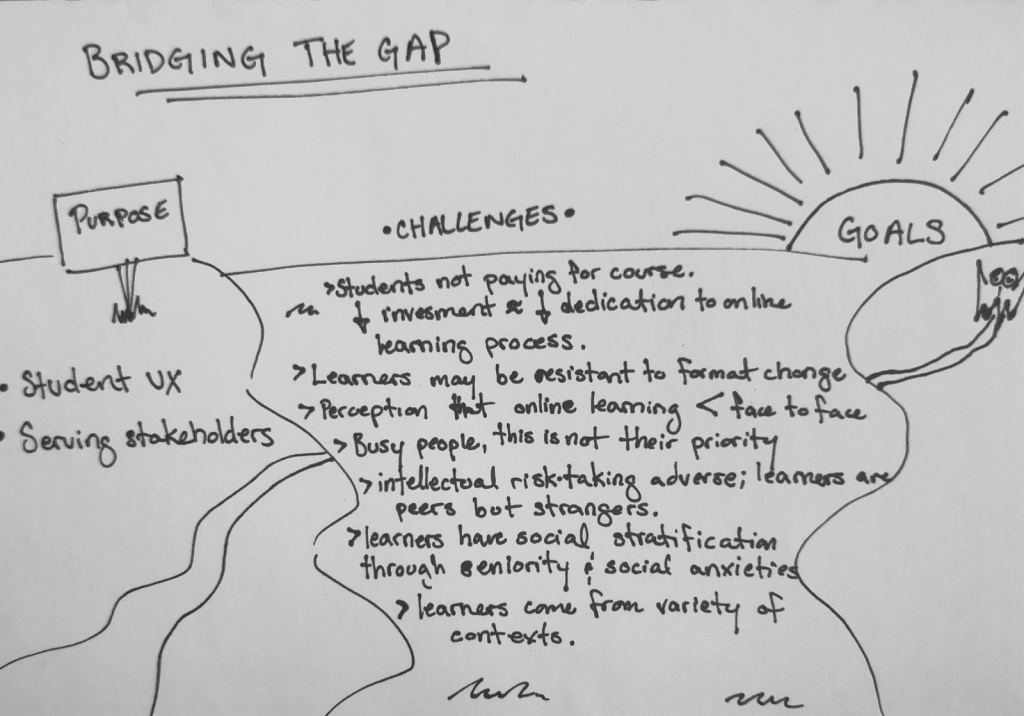 BRIDGING THE GAP
PURPOSE
• CHALLENGES •
GOALS
• Student UX
• Serving stakeholders
> Students not paying for course.
↓ invesment ≈ ↓ dedication to online
learning process.
> Learners may be resistant to format change
> Perception that online learning < face to face
> Busy people, this is not their priority
> intellectual risk-taking adverse; learners are
peers but strangers.
> learners have social stratification
through seniority & social anxieties
> learners come from variety of
contexts.